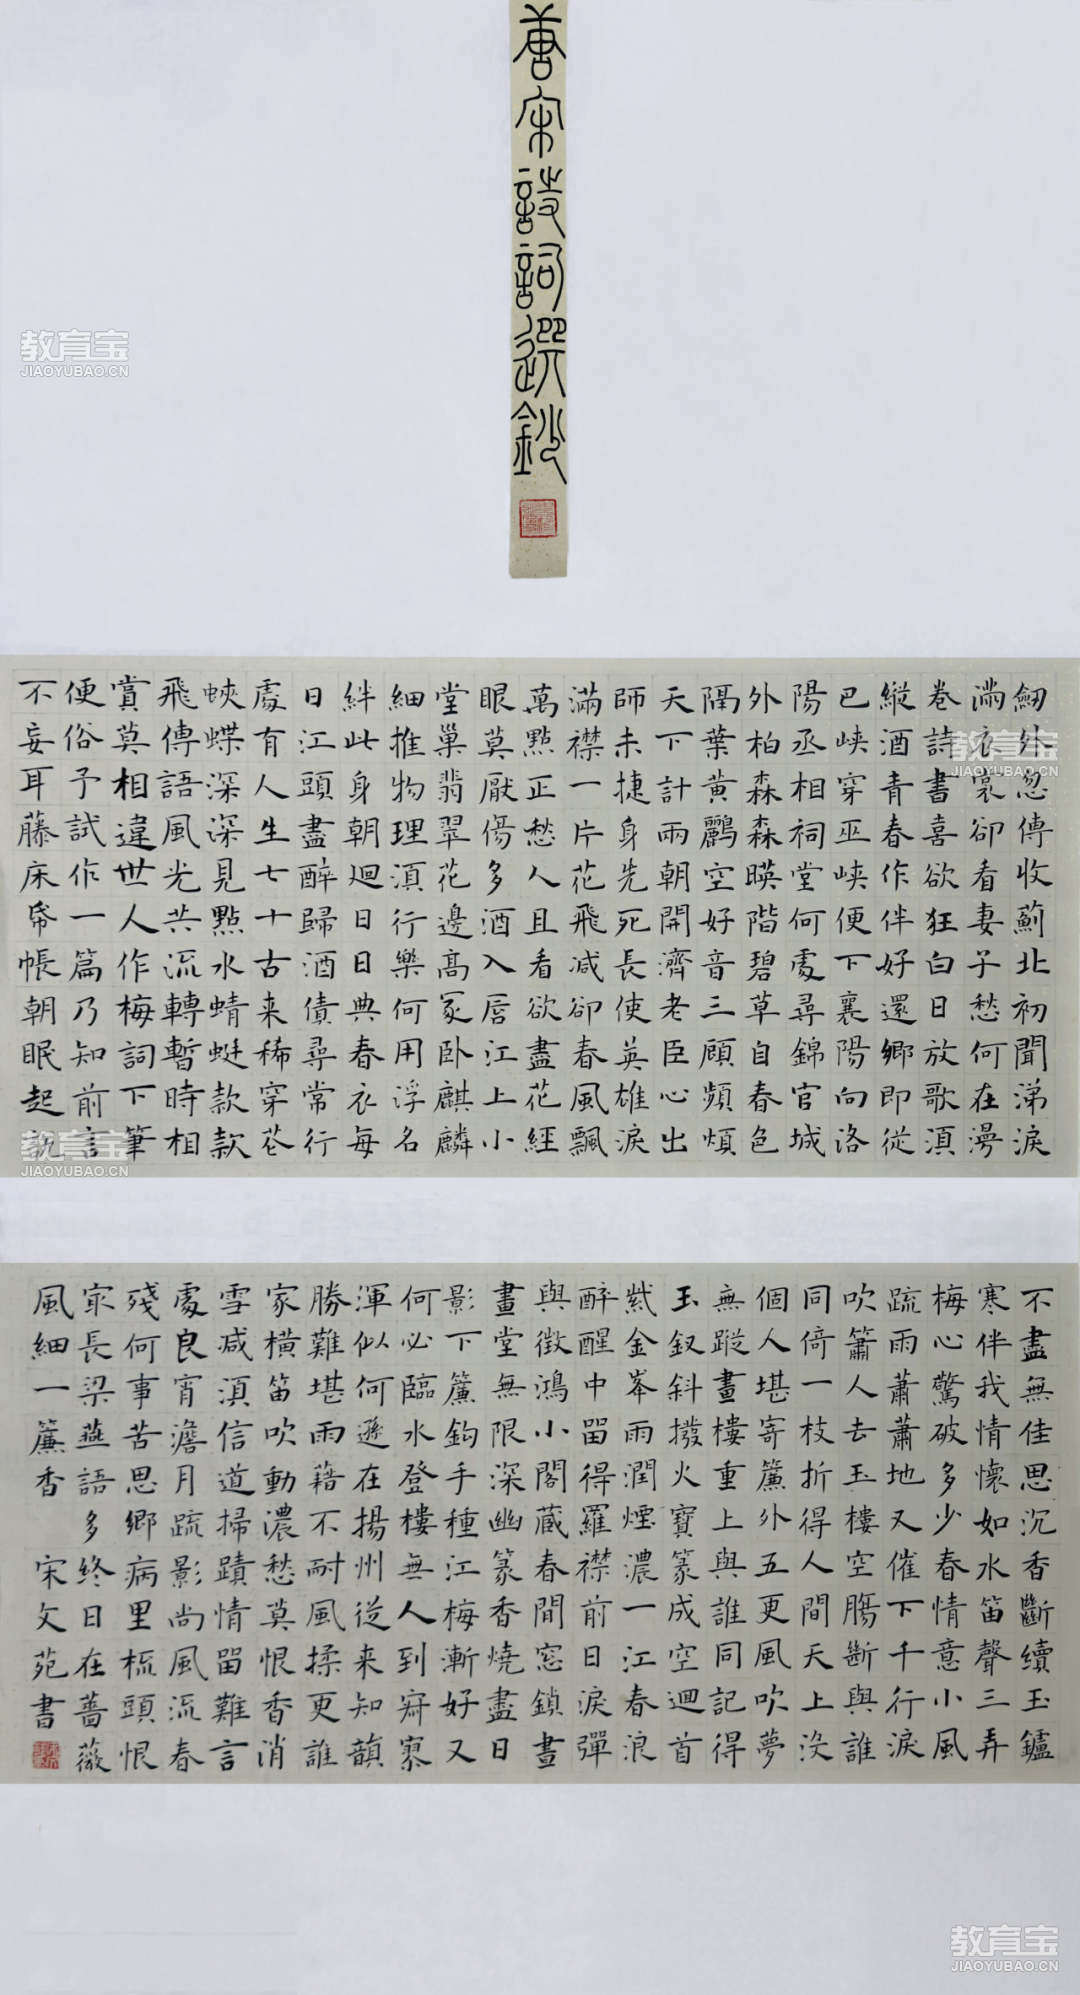 唐宋詩詞選鈔
劒外忽傳收薊北初聞涕淚
滿衣裳卻看妻子愁何在漫
卷詩書喜欲狂白日放歌湏
縱酒青春作伴好還鄉即從
巴峽穿巫峽便下襄陽向洛
陽丞相祠堂何處尋錦官城
外柏森森暎階碧草自春色
隔葉黃鸝空好音三顧頻煩
天下計兩朝開濟老臣心出
師未捷身先死長使英雄淚
滿襟一片花飛減卻春風飄
萬點正愁人且看欲盡花經
眼莫厭傷多酒入唇江上小
堂巢翡翠花邊高冢卧麒麟
細推物理湏行樂何用浮名
絆此身朝迴日日典春衣每
日江頭盡醉歸酒債尋常行
處有人生七十古来稀穿花
蛺蝶深深見點水蜻蜓款款
飛傳語風光共流轉暫時相
賞莫相違世人作梅詞下筆
便俗予試作一篇乃知前言
不妄耳藤床帋帳朝眠起說
不盡無佳思沉香斷續玉鑪
寒伴我情懷如水笛聲三弄
梅心驚破多少春情意小風
疏雨蕭蕭地又催下千行淚
吹簫人去玉樓空腸斷與誰
同倚一枝折得人間天上沒
個人堪寄簾外五更風吹夢
無蹤畫樓重上與誰同記得
玉釵斜撥火寶篆成空迴首
紫金峯雨潤煙濃一江春浪
醉醒中留得羅襟前日淚彈
與徵鴻小閣藏春間窓鎖晝
畫堂無限深幽篆香燒盡日
影下簾鉤手種江梅漸好又
何必臨水登樓無人到寂寥
渾似何遜在揚州從来知韻
勝難堪雨藉不耐風揉更誰
家橫笛吹動濃愁莫恨香消
雪減湏信道掃蹟情留難言
處良宵澹月疏影尚風流春
殘何事苦思鄉病里梳頭恨
㝡長梁燕語多終日在薔薇
風細一簾香 宋文苑書
教育宝
JIAOYUBAO.CN
教育宝
JIAOYUBAO.CN
教育宝
JIAOYUBAO.CN
教育宝
JIAOYUBAO.CN